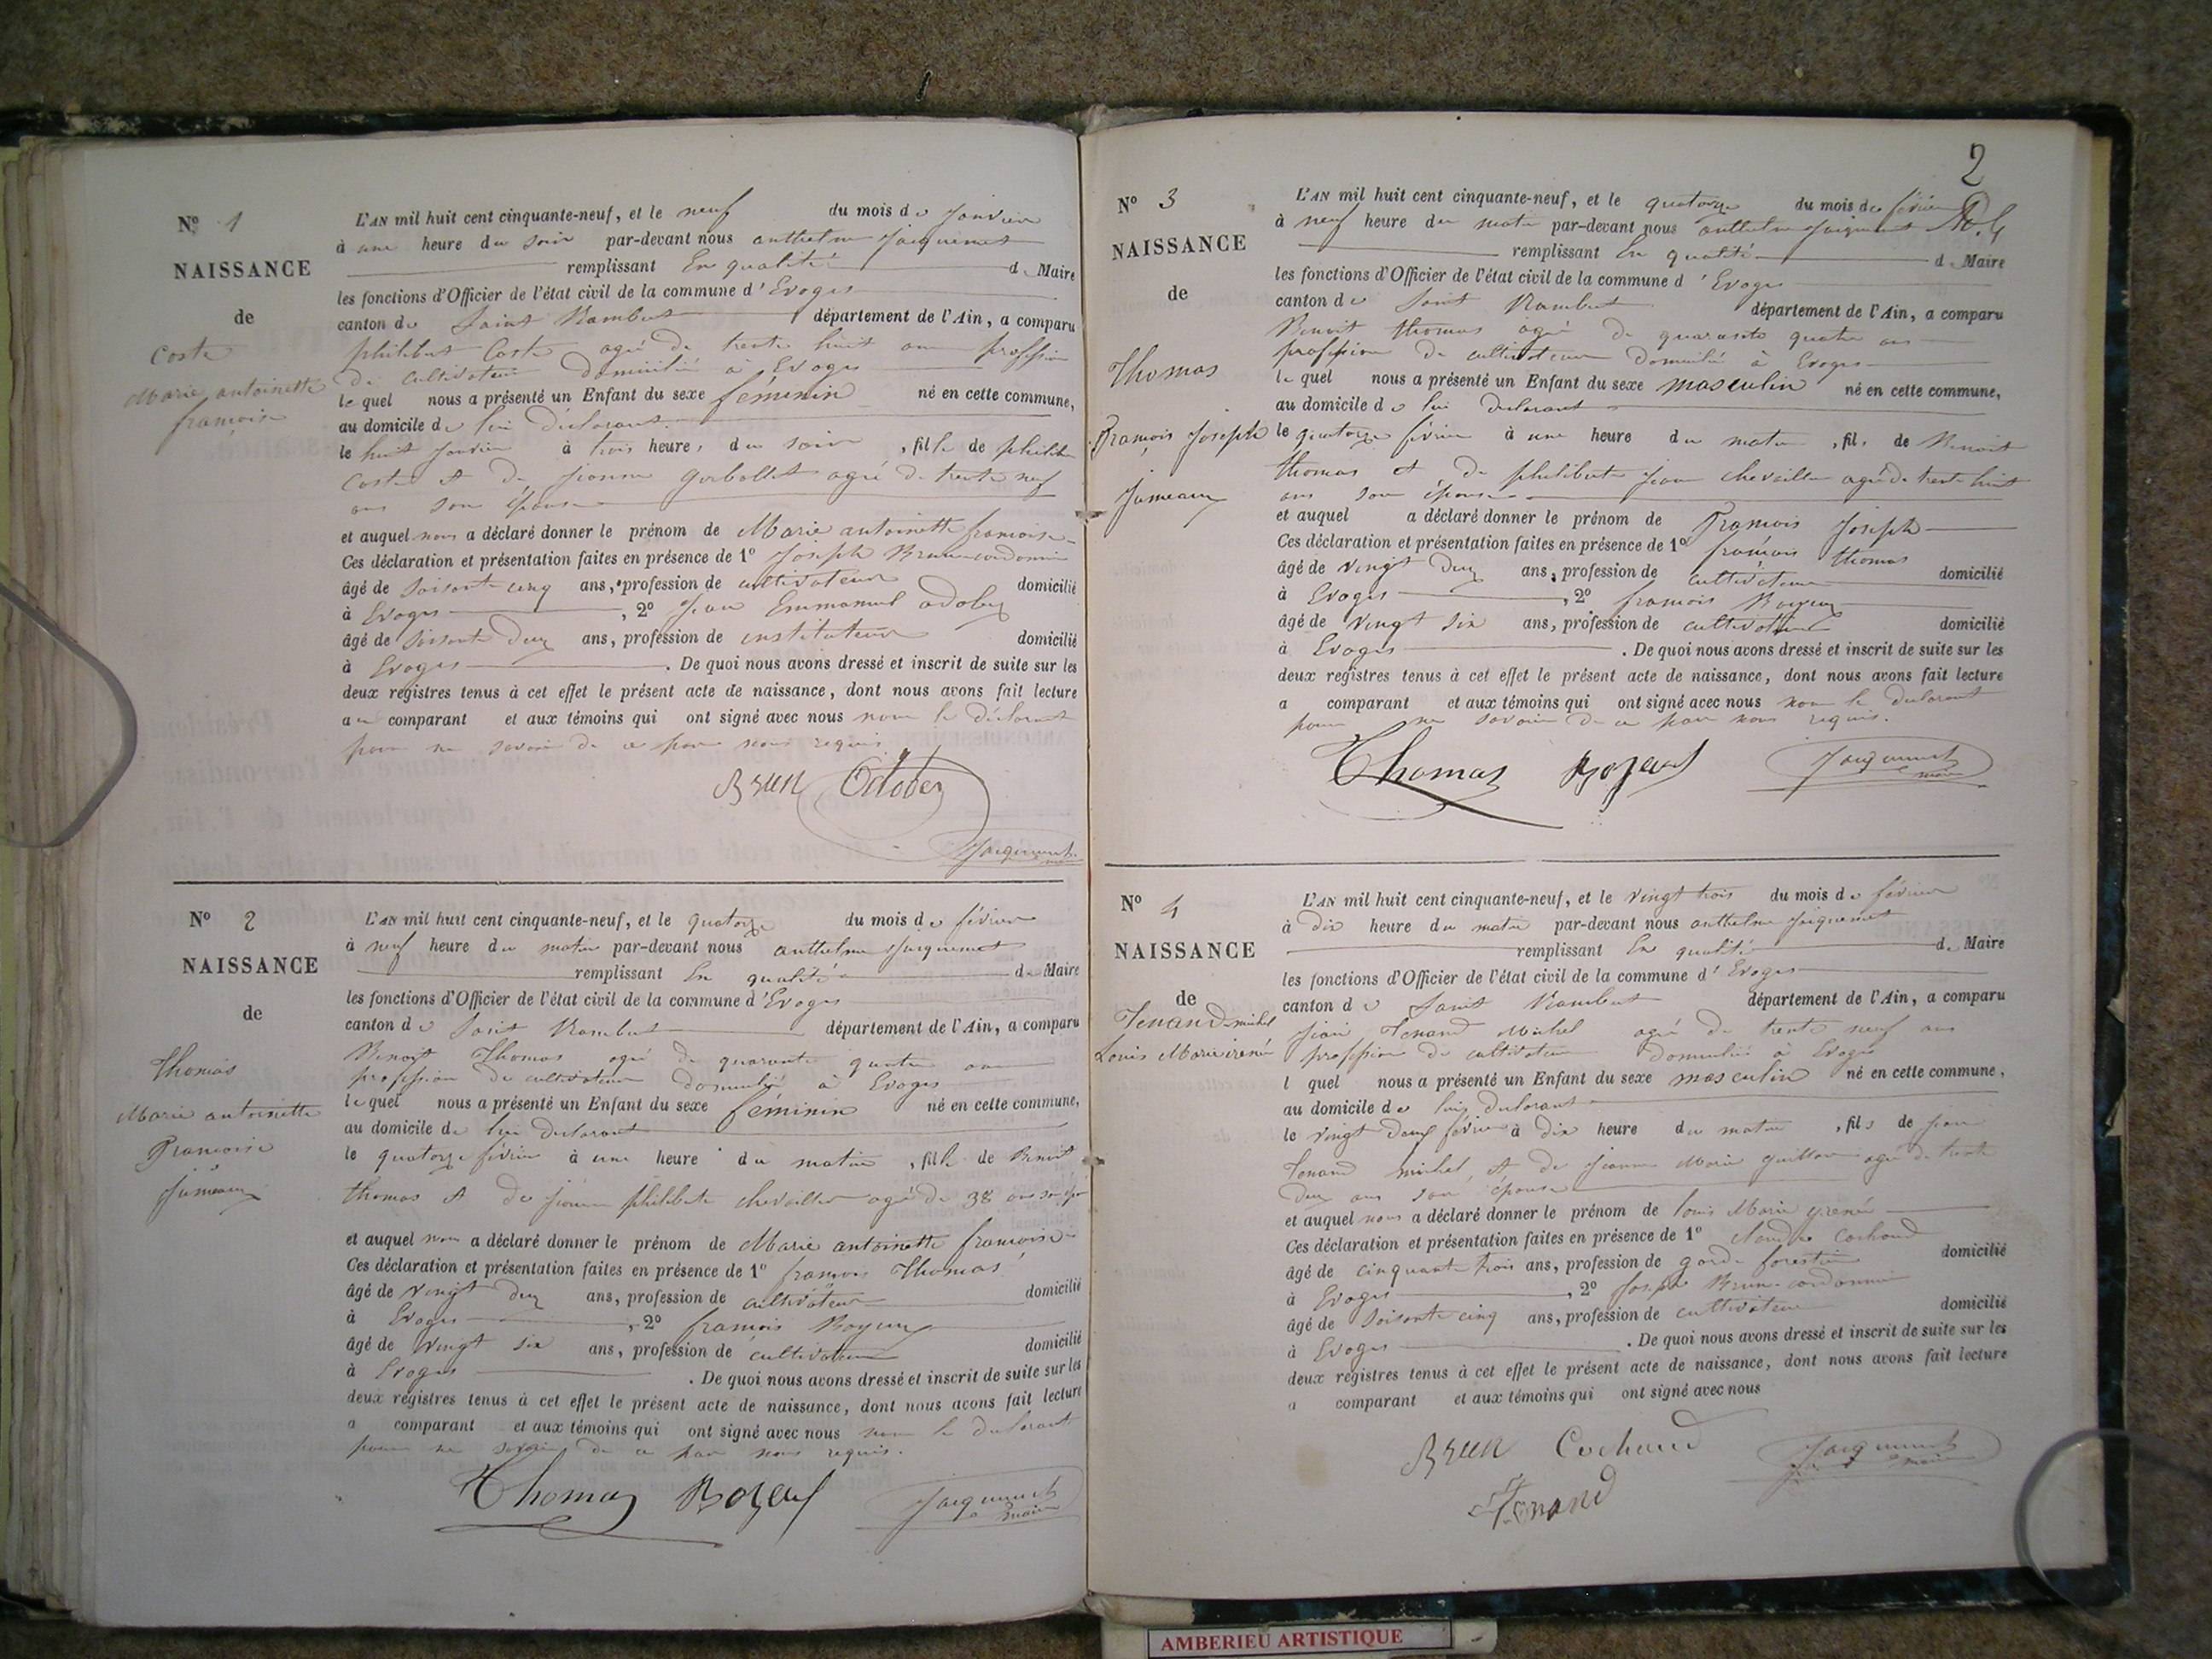 Nº 1
NAISSANCE
de
Coste
Marie antoinette
françoise
L'AN mil huit cent cinquante-neuf, et le neuf du mois de Janvier
à une heure du soir par-devant nous anthelme Jacquemet
remplissant En qualité de Maire
les fonctions d'Officier de l'état civil de la commune d'Evoges
canton de Saint Rambert département de l'Ain, a comparu
philibert Coste agé de trente huit ans profession
de cultivateur domicilié à Evoges
le quel nous a présenté un Enfant du sexe féminin né en cette commune,
au domicile de lui déclarant
le huit Janvier à trois heures du soir, fille de philibert
Coste et de jeanne agée de trente neuf
ans son épouse
et auquel nous a déclaré donner le prénom de Marie antoinette françoise
Ces déclaration et présentation faites en présence de 1º Joseph Brun cordonnier
âgé de soisante cinq ans, profession de cultivateur domicilié
à Evoges, 2º Jean Emmanuel
âgé de soisante deux ans, profession de instituteur domicilié
à Evoges. De quoi nous avons dressé et inscrit de suite sur les
deux registres tenus à cet effet le présent acte de naissance, dont nous avons fait lecture
au comparant et aux témoins qui ont signé avec nous non le déclarant
pour ne savoir de ce par nous requis
Brun
Jacquemet
maire
Nº 2
NAISSANCE
de
Thomas
Marie antoinette
Françoise
Jumeaux
L'AN mil huit cent cinquante-neuf, et le quatorze du mois de février
à neuf heure du matin par-devant nous anthelme Jacquemet
remplissant En qualité de Maire
les fonctions d'Officier de l'état civil de la commune d'Evoges
canton de Saint Rambert département de l'Ain, a comparu
Benoit Thomas agé de quarante quatre ans
profession de cultivateur domicilié à Evoges
le quel nous a présenté un Enfant du sexe féminin né en cette commune,
au domicile de lui déclarant
le quatorze février à une heure du matin, fille de Benoit
thomas et de jeanne philiberte chevallier agée de 38 ans son
et auquel nous a déclaré donner le prénom de Marie antoinette françoise
Ces déclaration et présentation faites en présence de 1º françois Thomas
âgé de vingt deux ans, profession de cultivateur domicilié
à Evoges, 2º francois
âgé de vingt six ans, profession de cultivateur domicilié
à Evoges. De quoi nous avons dressé et inscrit de suite sur les
deux registres tenus à cet effet le présent acte de naissance, dont nous avons fait lecture
a comparant et aux témoins qui ont signé avec nous non le déclarant
pour ne savoir de ce par nous requis.
Thomas
Jacquemet
maire
2
Nº 3
NAISSANCE
de
Thomas
François Joseph
Jumeaux
L'AN mil huit cent cinquante-neuf, et le quatorze du mois de février
à neuf heure du matin par-devant nous anthelme Jacquemet
remplissant En qualité de Maire
les fonctions d'Officier de l'état civil de la commune d'Evoges
canton de Saint Rambert département de l'Ain, a comparu
Benoit thomas agé de quarante quatre ans
profession de cultivateur domicilié à Evoges
le quel nous a présenté un Enfant du sexe masculin né en cette commune,
au domicile de lui déclarant
le quatorze février à une heure du matin, fils de Benoit
thomas et de philiberte jeanne chevallier agée de trente huit
ans son épouse
et auquel a déclaré donner le prénom de François Joseph
Ces déclaration et présentation faites en présence de 1º françois thomas
âgé de vingt deux ans, profession de cultivateur domicilié
à Evoges, 2º francois
âgé de vingt six ans, profession de cultivateur domicilié
à Evoges. De quoi nous avons dressé et inscrit de suite sur les
deux registres tenus à cet effet le présent acte de naissance, dont nous avons fait lecture
a comparant et aux témoins qui ont signé avec nous non le déclarant
pour ne savoir de ce par nous requis.
Thomas
Jacquemet
maire
Nº 4
NAISSANCE
de
Tenand michel
Louis Marie irené
L'AN mil huit cent cinquante-neuf, et le vingt trois du mois de février
à dix heure du matin par-devant nous anthelme Jacquemet
remplissant En qualité de Maire
les fonctions d'Officier de l'état civil de la commune d'Evoges
canton de Saint Rambert département de l'Ain, a comparu
Jean Tenand Michel agé de trente neuf ans
profession de cultivateur domicilié à Evoges
l quel nous a présenté un Enfant du sexe masculin né en cette commune,
au domicile de lui déclarant
le vingt deux février à dix heure du matin, fils de jean
Tenand michel et de jeanne Marie agée de trente
deux ans son épouse
et auquel nous a déclaré donner le prénom de louis Marie yrené
Ces déclaration et présentation faites en présence de 1º Cochaud
âgé de cinquante trois ans, profession de garde forestier domicilié
à Evoges, 2º Joseph Brun cordonnier
âgé de soisante cinq ans, profession de cultivateur domicilié
à Evoges. De quoi nous avons dressé et inscrit de suite sur les
deux registres tenus à cet effet le présent acte de naissance, dont nous avons fait lecture
a comparant et aux témoins qui ont signé avec nous
Brun Cochaud
Jacquemet
maire
Tenand
AMBERIEU ARTISTIQUE